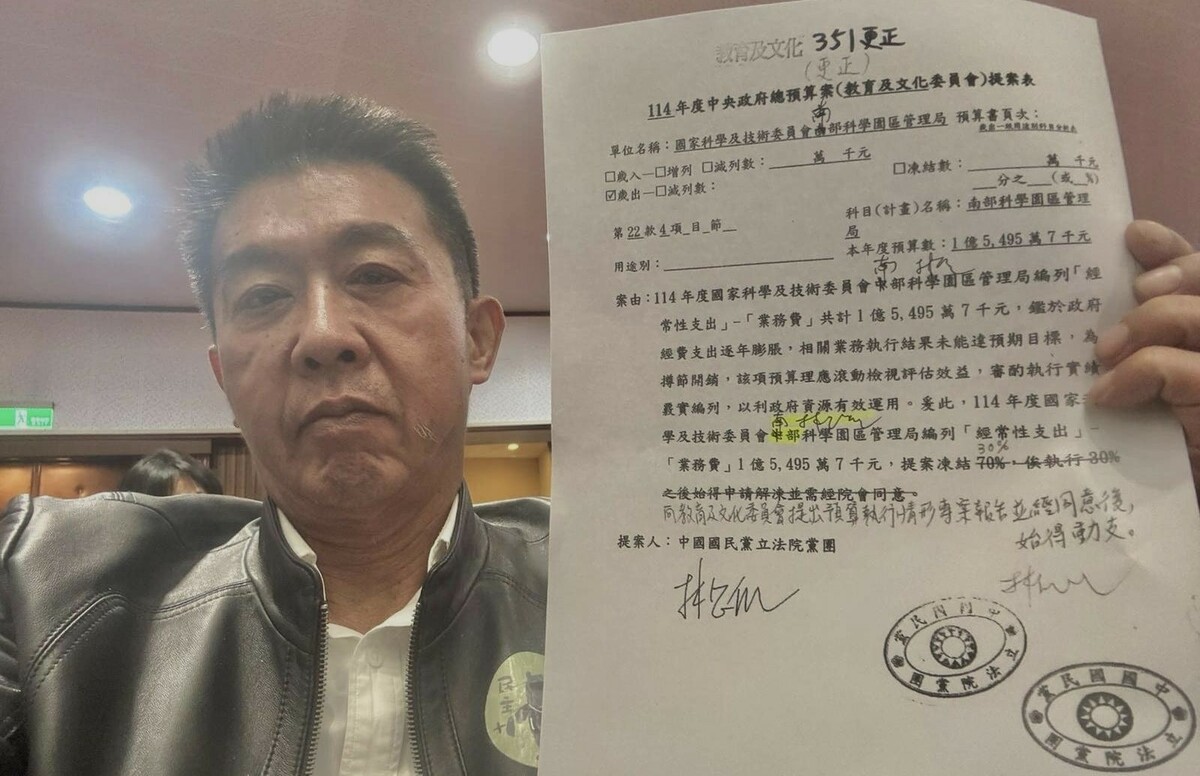 教育及文化 351更正
(更正)
114年度中央政府總預算案(教育及文化委員會)提案表
南
單位名稱:國家科學及技術委員會南部科學園區管理局 預算書頁次:
□歲入—□增列 □減列數: 萬 千元 □凍結數: 萬 千元
☑歲出—□減列數: 分之 (或 %)
第22款4項 目 節 科目(計畫)名稱:南部科學園區管理
局
用途別: 本年度預算數:1億5,495萬7千元
南
案由:114年度國家科學及技術委員會中部科學園區管理局編列「經
常性支出」-「業務費」共計1億5,495萬7千元,鑑於政府
經費支出逐年膨脹,相關業務執行結果未能達預期目標,為
撙節開銷,該項預算理應滾動檢視評估效益,審酌執行實績
覈實編列,以利政府資源有效運用。爰此,114年度國家
南
學及技術委員會中部科學園區管理局編列「經常性支出」-
30%
「業務費」1億5,495萬7千元,提案凍結70%,俟執行30%
之後始得申請解凍並需經院會同意。
向教育及文化委員會提出預算執行情形專案報告並經同意後,
始得動支。
提案人:中國國民黨立法院黨團
中國國民黨
立法院黨團
中國國民黨
立法院黨團
民主